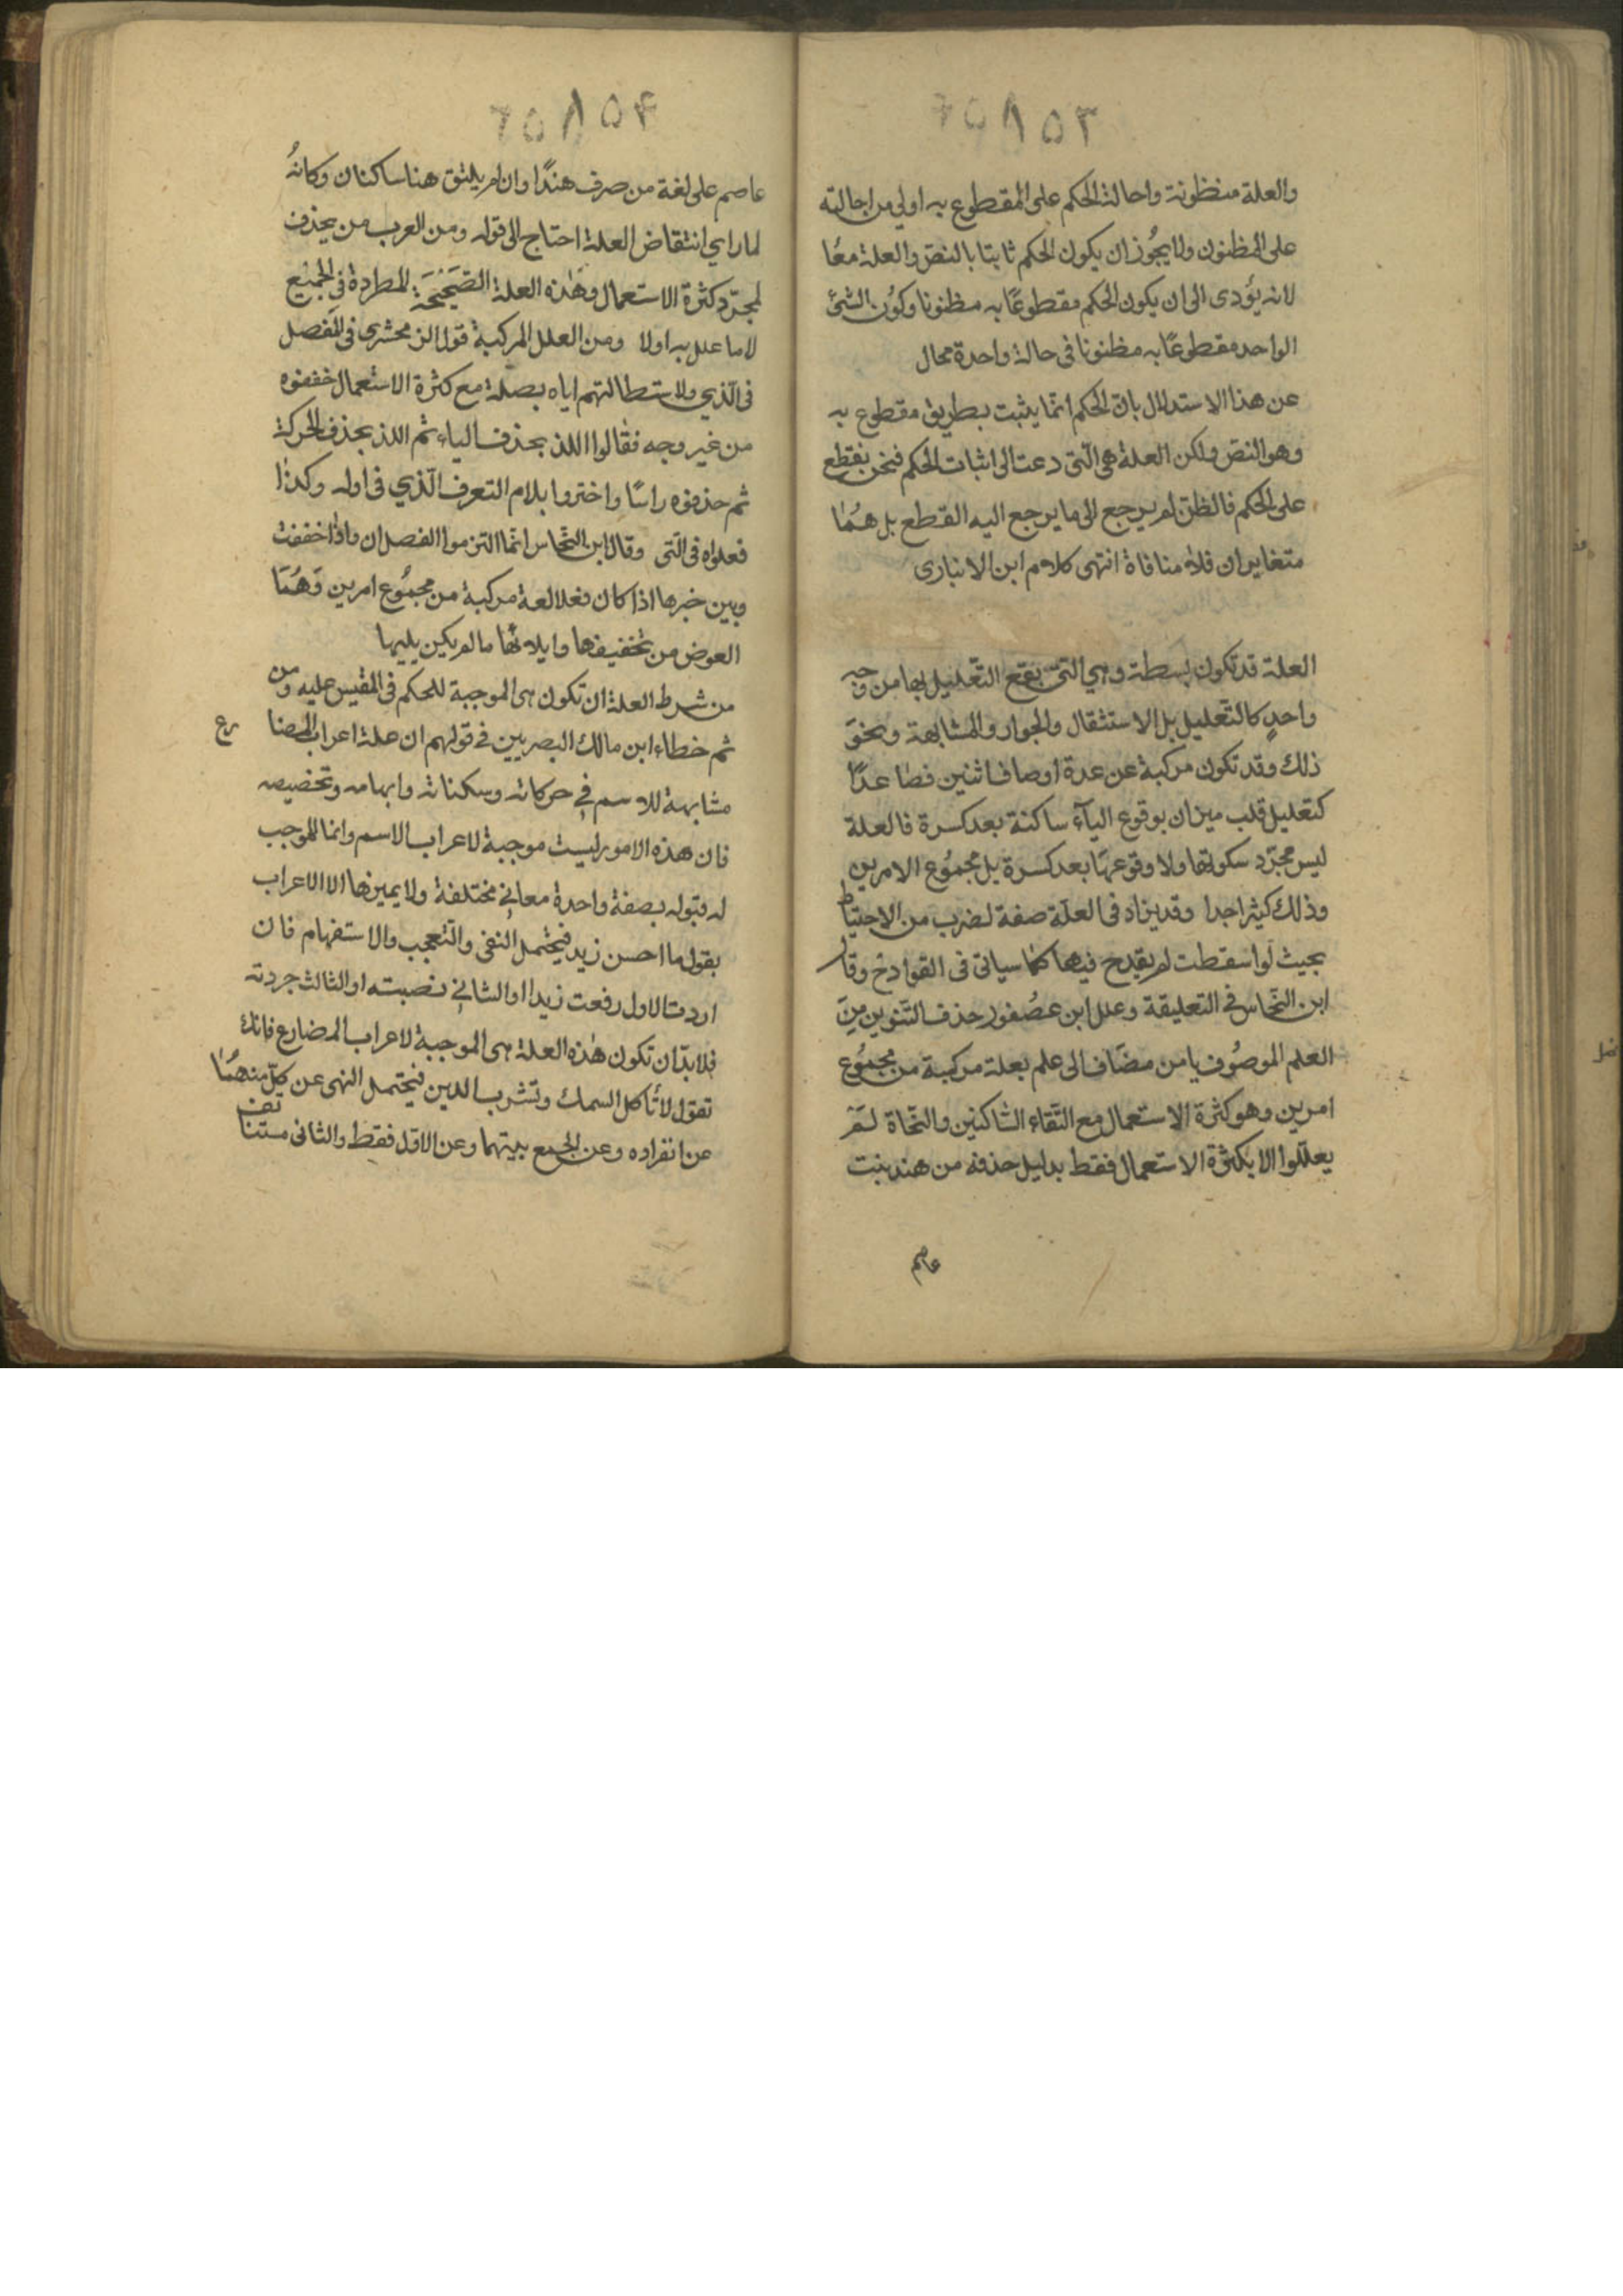 ٦٥٨٥٣
والعلة منظونة واحالة الحكم على المقطوع به اولي من احالته
على المظنون ولا يجُوز ان يكون الحكم ثابتا بالنصّ والعلة معًا
لانه يؤدى الى ان يكون الحكم مقطوعًا به مظنونا وكوُن الشئ
الواحد مقطوعًا به مظنونا فى حالة واحدة محال
عن هذا الاستدلال بانّ الحكم انمّا يثبت بطريق مقطوع به
وهو النصّ ولكن العلة هى الّتى دعت الى اثبات الحكم فنحن نقطع
على الحكم فالظنّ لم يرجع الى ما يرجع اليه القطع بل همُا
متغايران فلا منافاة انتهى كلام ابن الانبارى
العلة قد تكون بسطة وهي التىّ يقع التّعليل بها من وجه
واحدٍ كالتّعليل بالاستثقال والجوار والمشابهة ونحوَ
ذلك وقد تكون مركبة عن عدة اوصاف اثنين فصَاعدًا
كتعليل قلب ميزان بوقوع اليآء ساكنة بعد كسرة فالعلة
ليس مجرّد سكونها ولا وقوعهَا بعد كسرة بل مجموُع الامرين
وذلك كيثر اجدا وقد يزاد فى العلّة صفة لضرب من الاحتياط
بحيث لو اسقطت لم يقدح فيها كما سياتى فى القوادح وقال
ابن النحّاس فى التعليقة وعلل ابن عصُفور حذف التّنوين مِنَ
العلم الموصُوف بابن مضَاف الى علم بعلة مركبة من مجموُع
امرين وهو كثرة الاستعمال مع التّقاء الساكنين والنحّاة لمَ
يعلّلوا الا بكثرة الاستعمال فقط بدليل حذفه من هند بنت
عاصم
٦٥٨٥٤
عاصم على لغة من صرف هندًا وان لم يلتق هنا ساكنان وكانهُ
لما راي انتقاض العلة احتاج الى قوله ومن العرب من يحذف
لمجرّد كثرة الاستعمال وهَذه العلة الصَحيْحَة المطردة فى الجميْع
لا ما علل به اولا ومن العلل المركبة قول الزمحشرى فى المفصل
فى الّذي ولاستطالتهم اياه بصلة مع كثرة الاستعمال خففوه
من غير وجه فقالوا اللذ بحذف الياء ثم اللذ بحذف الحركة
ثم حذفوه راسًا واختروا بلام التعرف الّذي فى اوله وكذا
فعلواه فى الّتى وقال ابن النحّاس انمّا التزموا الفصل ان واذا خففت
وبين خبرها اذا كان فعلا لعة مركبة من مجموُع امرين وَهُمَا
العوض من تخفيفها وايلائها ما لم يكن يليها
من شرط العلة ان تكون هى الموجبة للحكم فى المقيس عليه ومن
ثم خطاء ابن مالك البصريين فى قولهم ان علة اعراب المضارع
مشابهة للاسم فى حركاته وسكناته وابهامه وتخصيصه
فان هذه الامور ليست موجبة لاعراب الاسم وانما الموجب
له قبوله بصفة واحدة معاني مختلفة ولا يميزها الا الاعراب
بقول ما احسن زيد فيحتمل النفى والتّعجب والاستفهام فان
اردت الاول رفعت زيدا او الثاني نصبته او الثالث جردته
فلا بدّ ان تكون هذه العلة هى الموجبة لاعراب المضارع فانك
تقول لا تٔاكل السمك وتشرب الدين فيحتمل النهى عن كلّ منهمُا
عن انفراده وعن الجمع بينهما وعن الاوّل فقط والثانى مستنانف